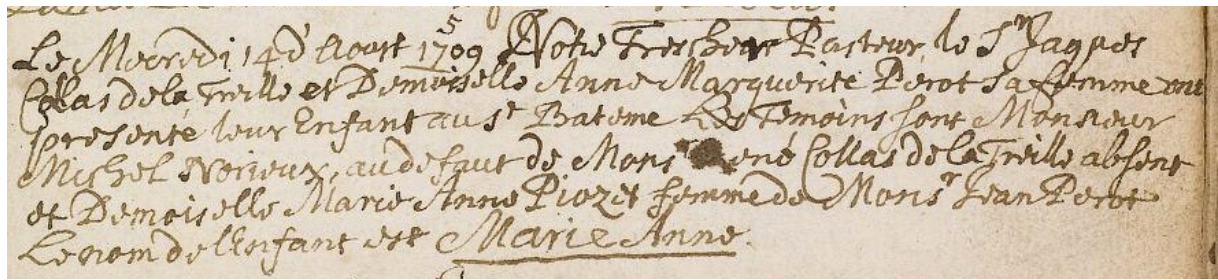 Le Mecredi 14 d'Aoust 1709 Notre Trescher Pasteur le Sr Jaques
Collas de la Treille et Demoiselle Anne Marguerite Perot sa femme ont
presenté leur Enfant au St Bateme Les Temoins sont Monsieur
Michel Norieux, au defaut de Monsr René Collas de la Treille absent
et Demoiselle Marie Anne Piozet femme de Monsr Jean Perot
Le nom de l'Enfant est Marie Anne.